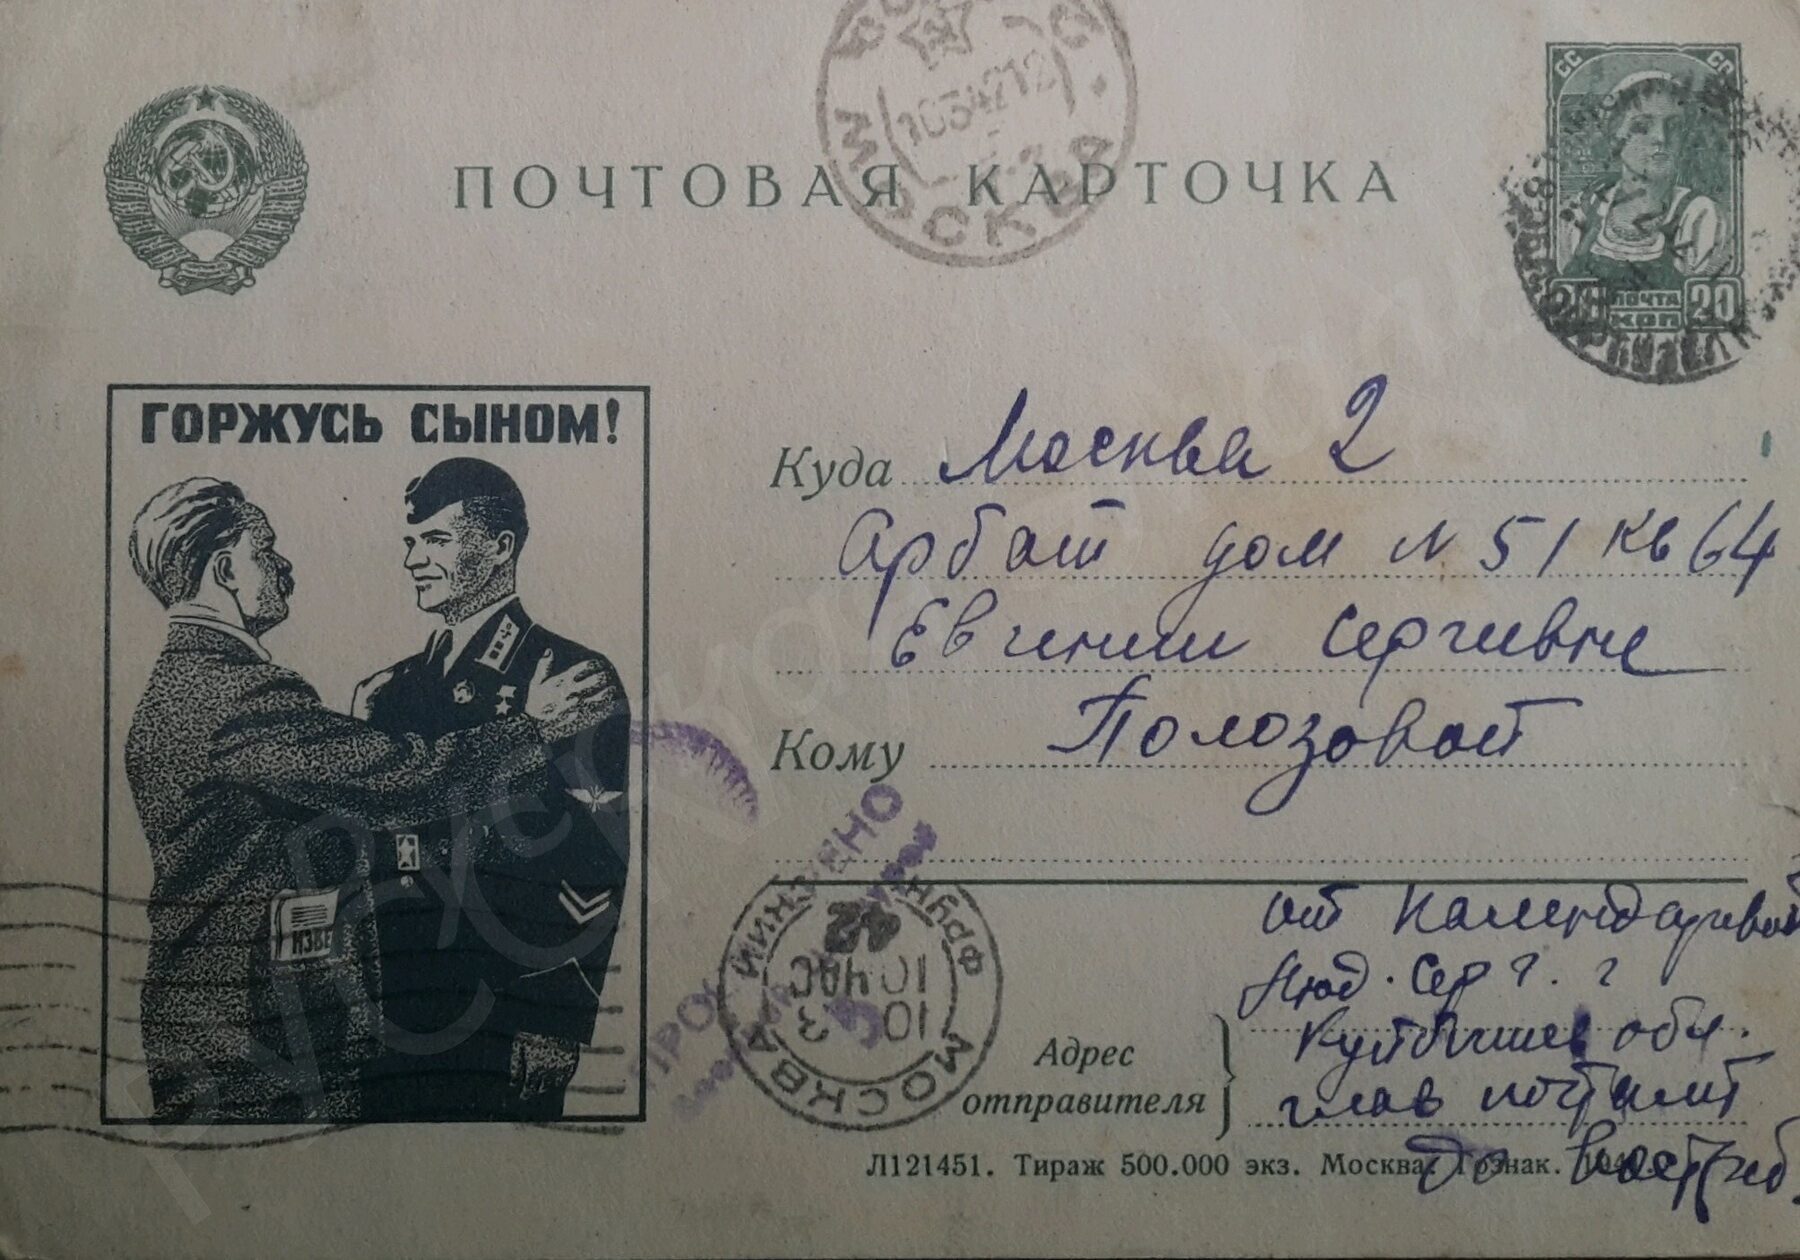 МОСКВА
10 3 42 12
ПОЧТОВАЯ КАРТОЧКА
СС СР
20 ПОЧТА 20
КОП
ГОРЖУСЬ СЫНОМ!
ИЗВЕ
Куда Москва 2
Арбат дом N 51 кв 64
Евгении Сергивне
Кому Полозовой
МОСКВА
10 3
10 ЧАС
42
от Календаревой
Люд. Серг. г
Адрес отправителя
Куйбышев обл.
глав почтамт
до востреб.
Л121451. Тираж 500.000 экз. Москва. Гознак.